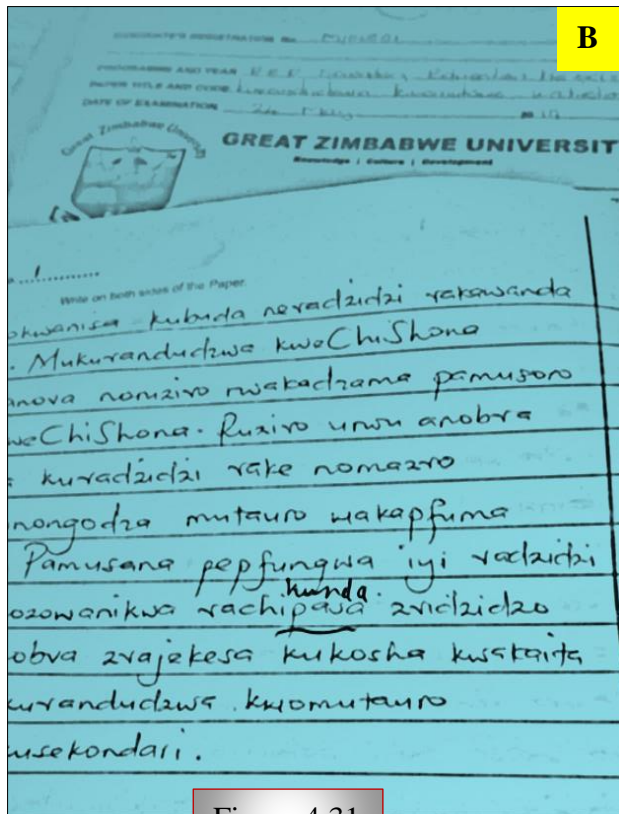 B
CANDIDATE'S REGISTRATION No.
PROGRAMME AND YEAR
PAPER TITLE AND CODE
DATE OF EXAMINATION
Great Zimbabwe University
GREAT ZIMBABWE UNIVERSIT
Knowledge | Culture | Development
1
Write on both sides of the Paper.
okwanisa kubuda neradzidzi rakawanda
. Mukurandudzwa kweChiShona
anova noruzivo rwakadzama pamusoro
weChiShona. Ruzivo urwu anobva
kuradzidzi rake nomazvo
nongodza mutauro wakapfuma
Pamusana pepfungwa iyi vadzidzi
kunda
ozowanikwa vachipasa zvidzidzo
obva zvajekesa kukosha kwakaita
kurandudzwa kwomutauro
kusekondari.
Figure 4.31